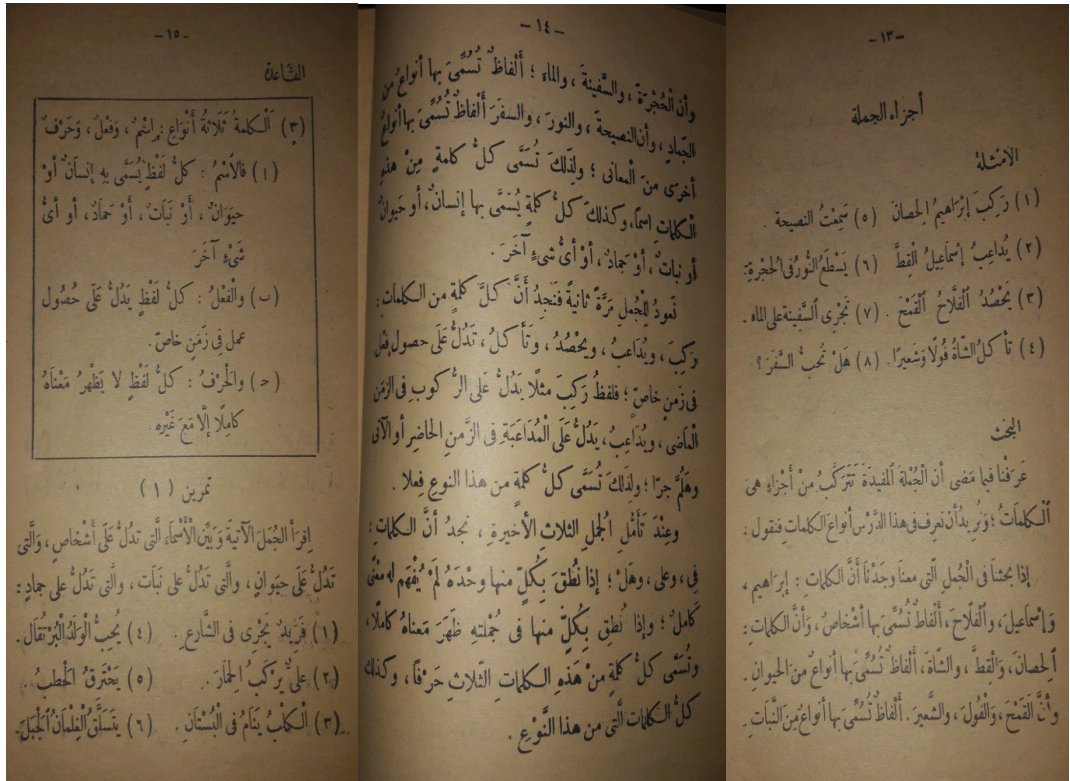 — ١٣ —
أجزاء الجملة
الأمثلة
(١) رَكِبَ إِبْرَاهِيمُ الحِصانَ (٥) سَمِعْتُ النصيحة .
(٢) يُداعِبُ إِسْمَاعِيلُ القِطَّ (٦) يَسْطَعُ النُّورُ فى الحُجْرَة .
(٣) يَحْصُدُ ٱلْفَلَّاحُ ٱلْقَمْحَ . (٧) تَجْرِى السَّفِينَة على الماء .
(٤) تأكلُ الشاةُ فُولًا وَشعيرًا . (٨) هَلْ تُحبُّ السَّفَرَ ؟
البحث
عَرَفْنا فيما مَضى أن الجُملة المفيدَةَ تَتَرَكَّبُ مِنْ أَجْزَاءٍ هى
ٱلْكلماتُ ؛ وَنُرِيدُ أن نَعرف فى هذا الدَّرْس أنواعَ الكلماتِ فنقول :
إذا بحثنا فى الجُملِ الَّتى معنا وجَدْنا أَنَّ الكلماتِ : إبراهيم ،
وَإسماعيلَ ، وٱلْفلّاحَ ، أَلْفاظٌ تُسُمِّىَ بها أشخاصٌ ، وَأنَّ الكلماتِ :
الحِصانَ ، وَالقِطَّ ، والشاةَ ، ألْفاظٌ تُسُمِّىَ بها أنواعٌ منَ الحيوانِ .
وأنَّ القَمْحَ ، وَالْفُولَ ، والشعيرَ . أَلْفاظٌ تُسُمِّىَ بها أنواعٌ مِنَ النَّبَاتِ .
— ١٤ —
وأن الْحُجْرَةَ ، والسَّفينةَ ، والماء ؛ أَلْفاظٌ تُسُمِّىَ بها أنواعٌ من
الجمادِ ، وأن النصيحةَ ، والنورَ ، والسفرَ أَلْفاظٌ تُسُمِّىَ بها أنواعٌ
أخرى من المعانى ؛ ولِذَلكَ تُسَمَّى كلُّ كلمةٍ مِنْ هذهِ
الكلماتِ اسمًا، وكذلك كلُّ كلمةٍ يُسَمَّى بها إنسانٌ ، أو حَيوانٌ
أو نباتٌ ، أوْ جمادٌ ، أوْ أىُّ شىءٍ آخَرَ .
نَعودُ لِلْجُملِ مَرَّةً ثانيةً فنَجدُ أَنَّ كلَّ كلمةٍ من الكلمات :
رَكِبَ ، ويُدَاعِبُ ، ويحْصُدُ ، وتَأكلُ ، تَدُلُّ عَلَى حصولِ فِعْل
فى زَمنٍ خاصّ ؛ فلفظُ رَكِبَ مثلًا يَدُلُّ عَلى الرُّكوبِ فى الزمَن
الْماضى ، ويُدَاعِبُ ، يَدُلُّ عَلَى الْمُدَاعَبَة فى الزَّمنِ الحاضِرِ أو الآتى
وهَلُمَّ جرًا ؛ ولِذَلكَ تُسَمَّى كلُّ كلمةٍ من هذا النوعِ فِعلا .
وعِنْدَ تَأَمُّلِ الجملِ الثلاث الأخيرةِ ، نجدُ أنَّ الكلمات :
فِى ، وعلى ، وهَلْ ؛ إذا نُطقَ بِكُلٍّ منها وحْدَهُ لمْ يُفْهَم له معْنًى
كَامِلٌ ؛ وإذا نُطِق بِكُلٍّ منها فى جُمْلتهِ ظهَرَ مَعناهُ كاملًا ،
وتُسَمَّى كلُّ كلمةٍ مِنْ هَذهِ الكلماتِ الثلاثِ حَرْفًا ، وكذلك
كلُّ الكلماتِ الَّتى من هذا النَّوْعِ .
— ١٥ —
القاعدة
(٣) اَلْكلمةُ ثَلَاثَةُ أَنْوَاعٍ : إِسْمٌ ، وَفِعْلٌ ، وَحَرْفٌ
(ا) فالاِسْمُ : كلُّ لَفْظٍ يُسَمَّى بِهِ إنسانٌ أَوْ
حيَوَانٌ ، أَوْ نَبَاتٌ ، أَوْ جَمَادٌ ، أو أىُّ
شَىْءٍ آخَرَ
(ب) والْفِعْلُ : كلُّ لَفْظٍ يَدُلُّ عَلَى حُصُولِ
عمل فى زَمَنٍ خاصّ .
(ح) والْحَرْفُ : كلُّ لَفْظٍ لا يَظْهرُ مَعْنَاهُ
كاملًا إِلَّا مَعَ غَيْرِه
تمرين (١)
اِقرَأ الجُمَلَ الآتيةَ وَبَيِّنِ الْأَسْماءَ الَّتى تدُلُّ عَلَى أشْخاصٍ ، وَالَّتى
تَدُلُّ عَلَى حيَوانٍ ، والَّتى تَدُلُّ على نَبات ، والَّتى تَدُلُّ على جمادٍ :
(١) فَرِيدٌ يَجْرِى فى الشَّارعِ . (٤) يُحِبُّ الْوَلَدُ الْبُرْتُقَالَ .
(٢) علىٌّ يَرْكَبُ الحِمَارَ . (٥) يَحْترَقُ الْحَطَبُ .
(٣) ٱلْكلْبُ يَنَامُ فى الْبُسْتَانِ . (٦) يَتَسَلَّقُ الْغِلْمَانُ الْجَبَلَ .